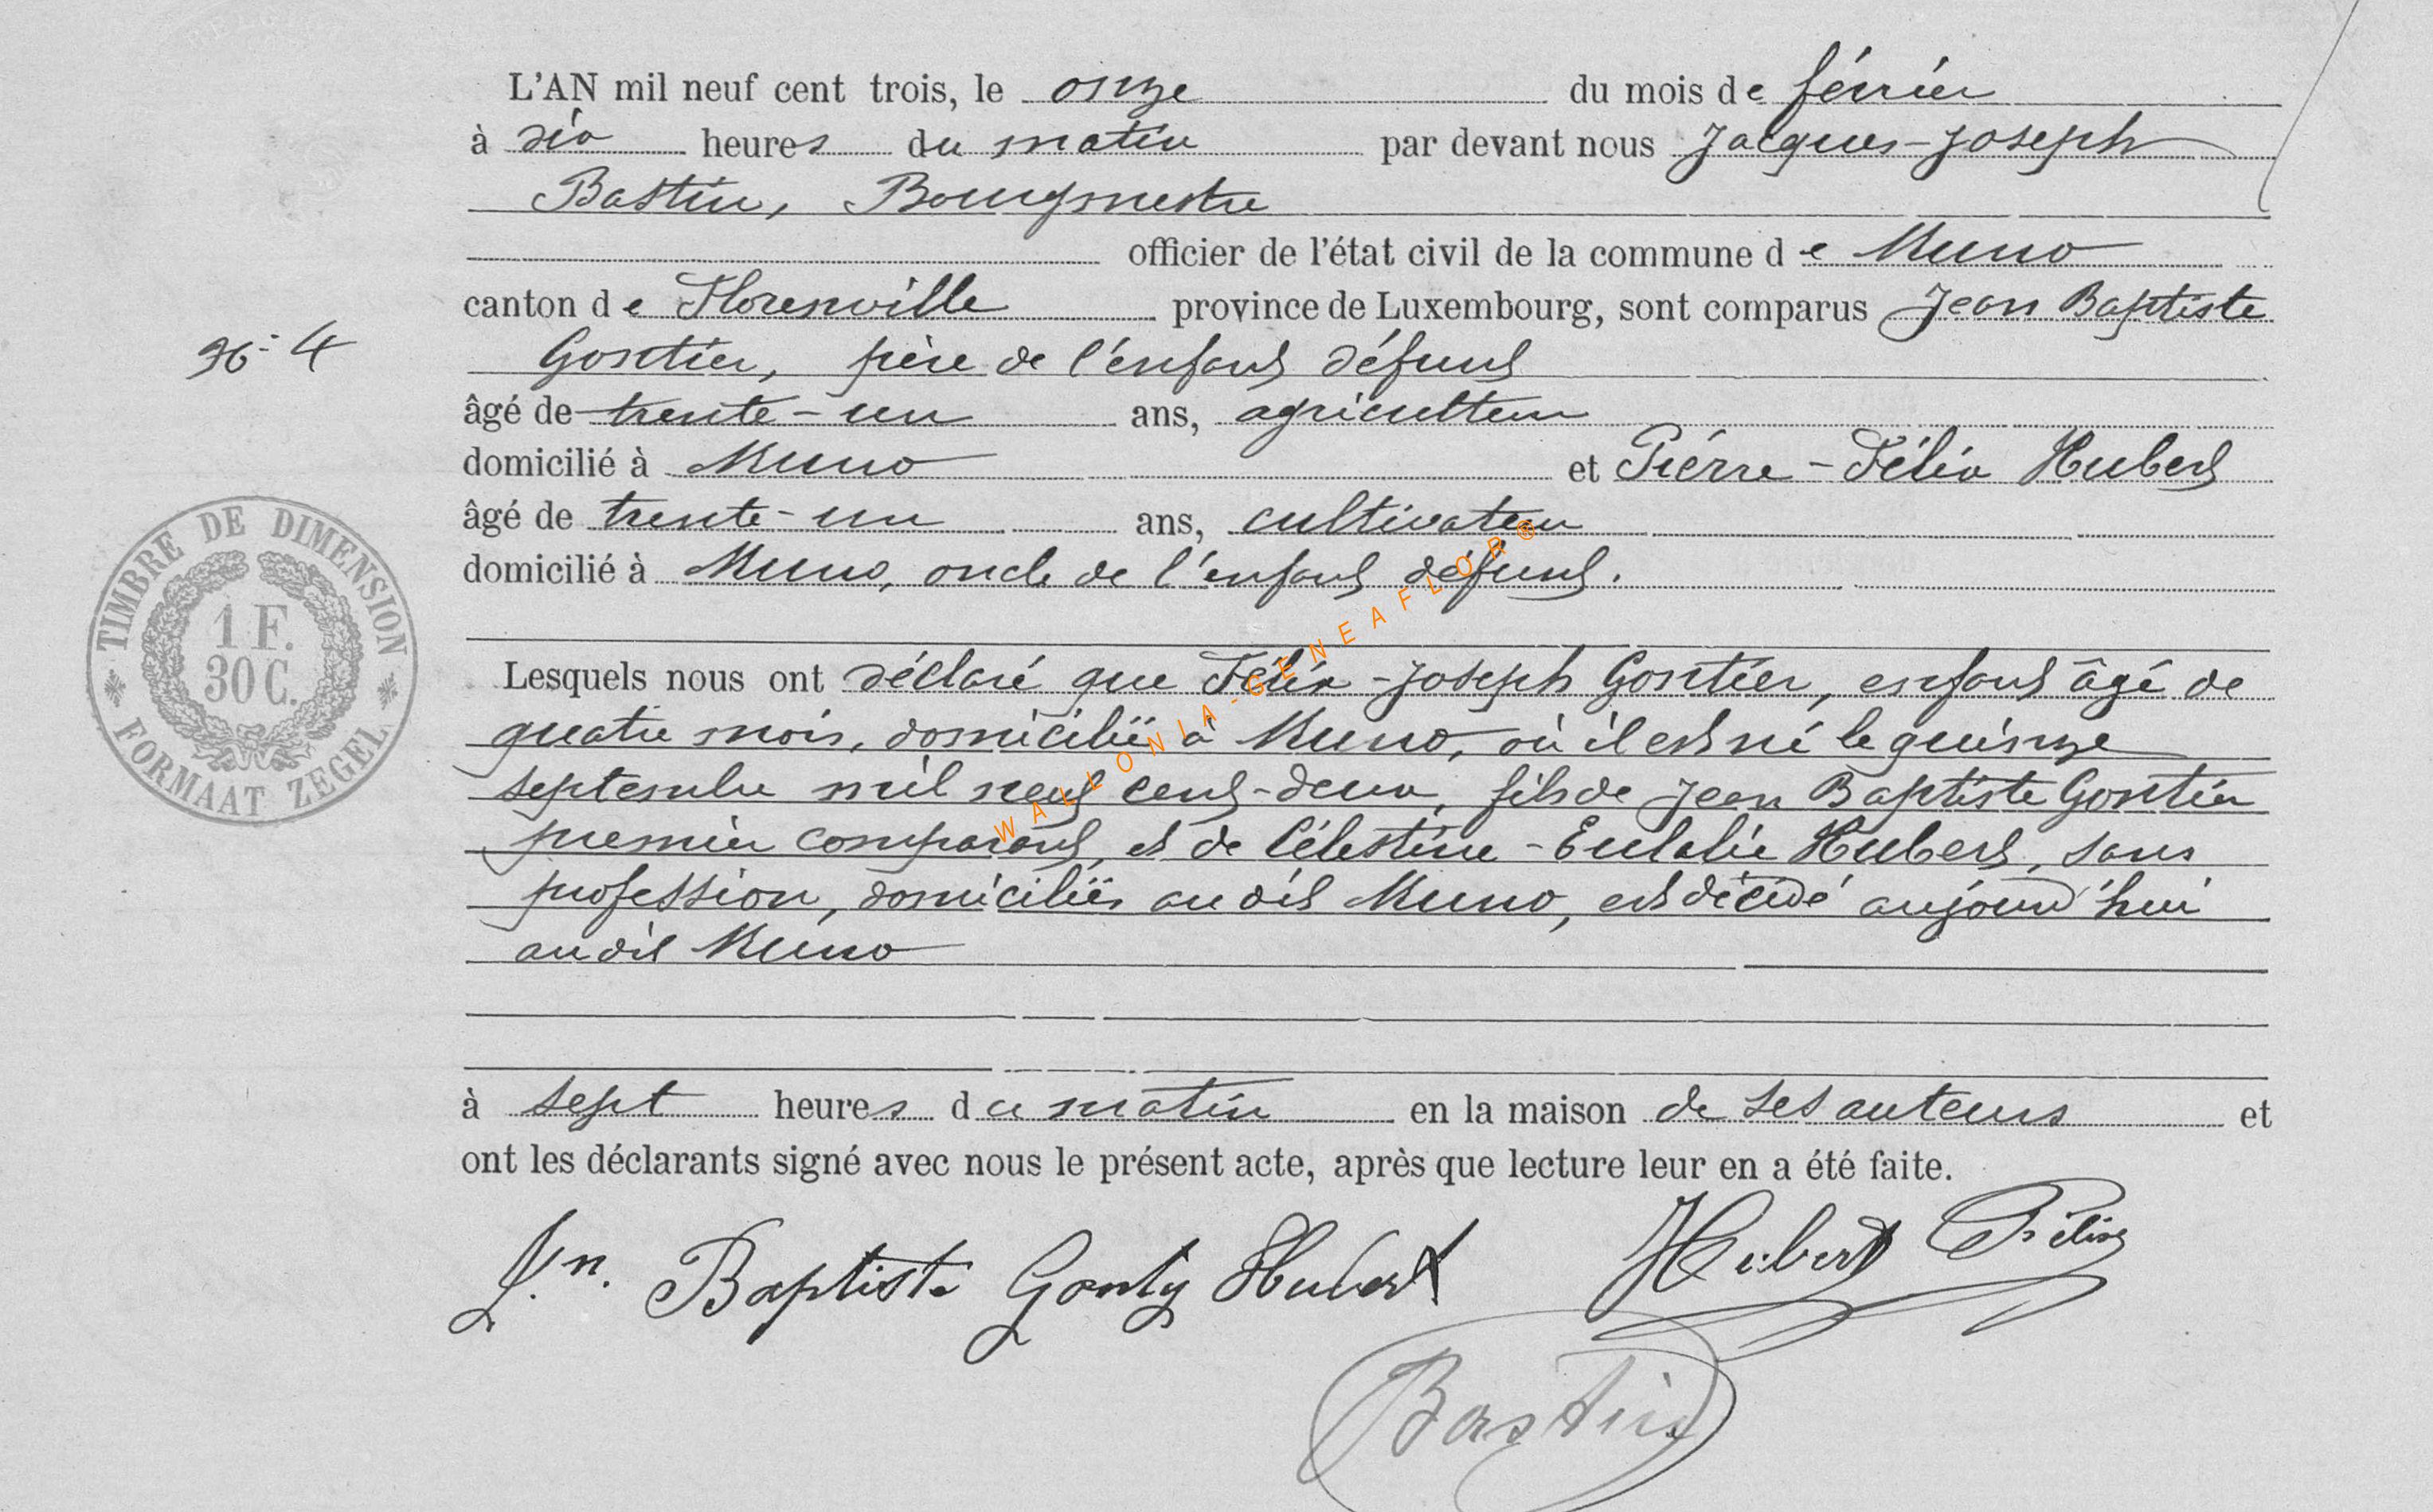 L'AN mil neuf cent trois, le onze du mois de février
à dix heures du matin par devant nous Jacques-Joseph
Bastin, Bourgmestre
officier de l'état civil de la commune de Muno
canton de Florenville province de Luxembourg, sont comparus Jean Baptiste
No 4
Gontier, père de l'enfant défunt
âgé de trente-un ans, agriculteur
domicilié à Muno et Piérre-Félix Hubert
âgé de trente-un ans, cultivateur
domicilié à Muno, oncle de l'enfant défunt.
TIMBRE DE DIMENSION
1 F.
30 C.
FORMAAT ZEGEL
WALLONIA-GENEAFLOR®
Lesquels nous ont déclaré que Félix-Joseph Gontier, enfant âgé de
quatre mois, domicilié à Muno, où il est né le quinze
septembre mil neuf cent-deux, fils de Jean Baptiste Gontier
premier comparant, et de Célestine-Eulalie Hubert, sans
profession, domiciliés au dit Muno, est décédé aujourd'hui
au dit Muno
à sept heures du matin en la maison de ses auteurs et
ont les déclarants signé avec nous le présent acte, après que lecture leur en a été faite.
Jn. Baptiste Gonty Hubert Hubert Félix
Bastin